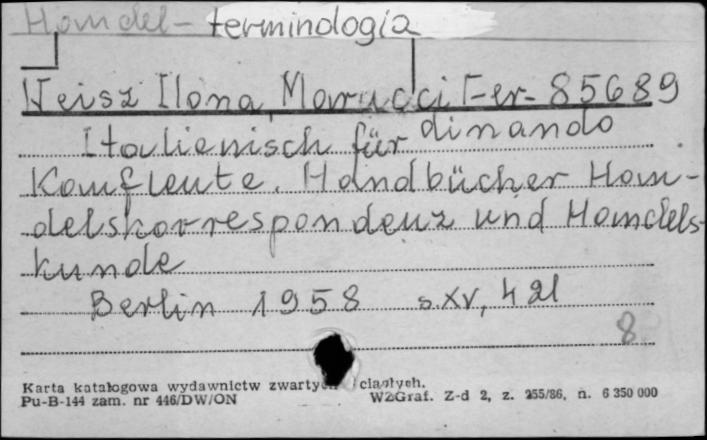 Handel - terminologia
Weisz Ilona, Marucci Fer- 85689
dinando
Italienisch für
Kaufleute. Handbücher Han-
delskorrespondenz und Handels-
kunde
Berlin 1958 s. XV, 421
8
Karta katalogowa wydawnictw zwartych i ciągłych.
Pu-B-144 zam. nr 446/DW/ON WZGraf. Z-d 2, z. 255/86, n. 6 350 000